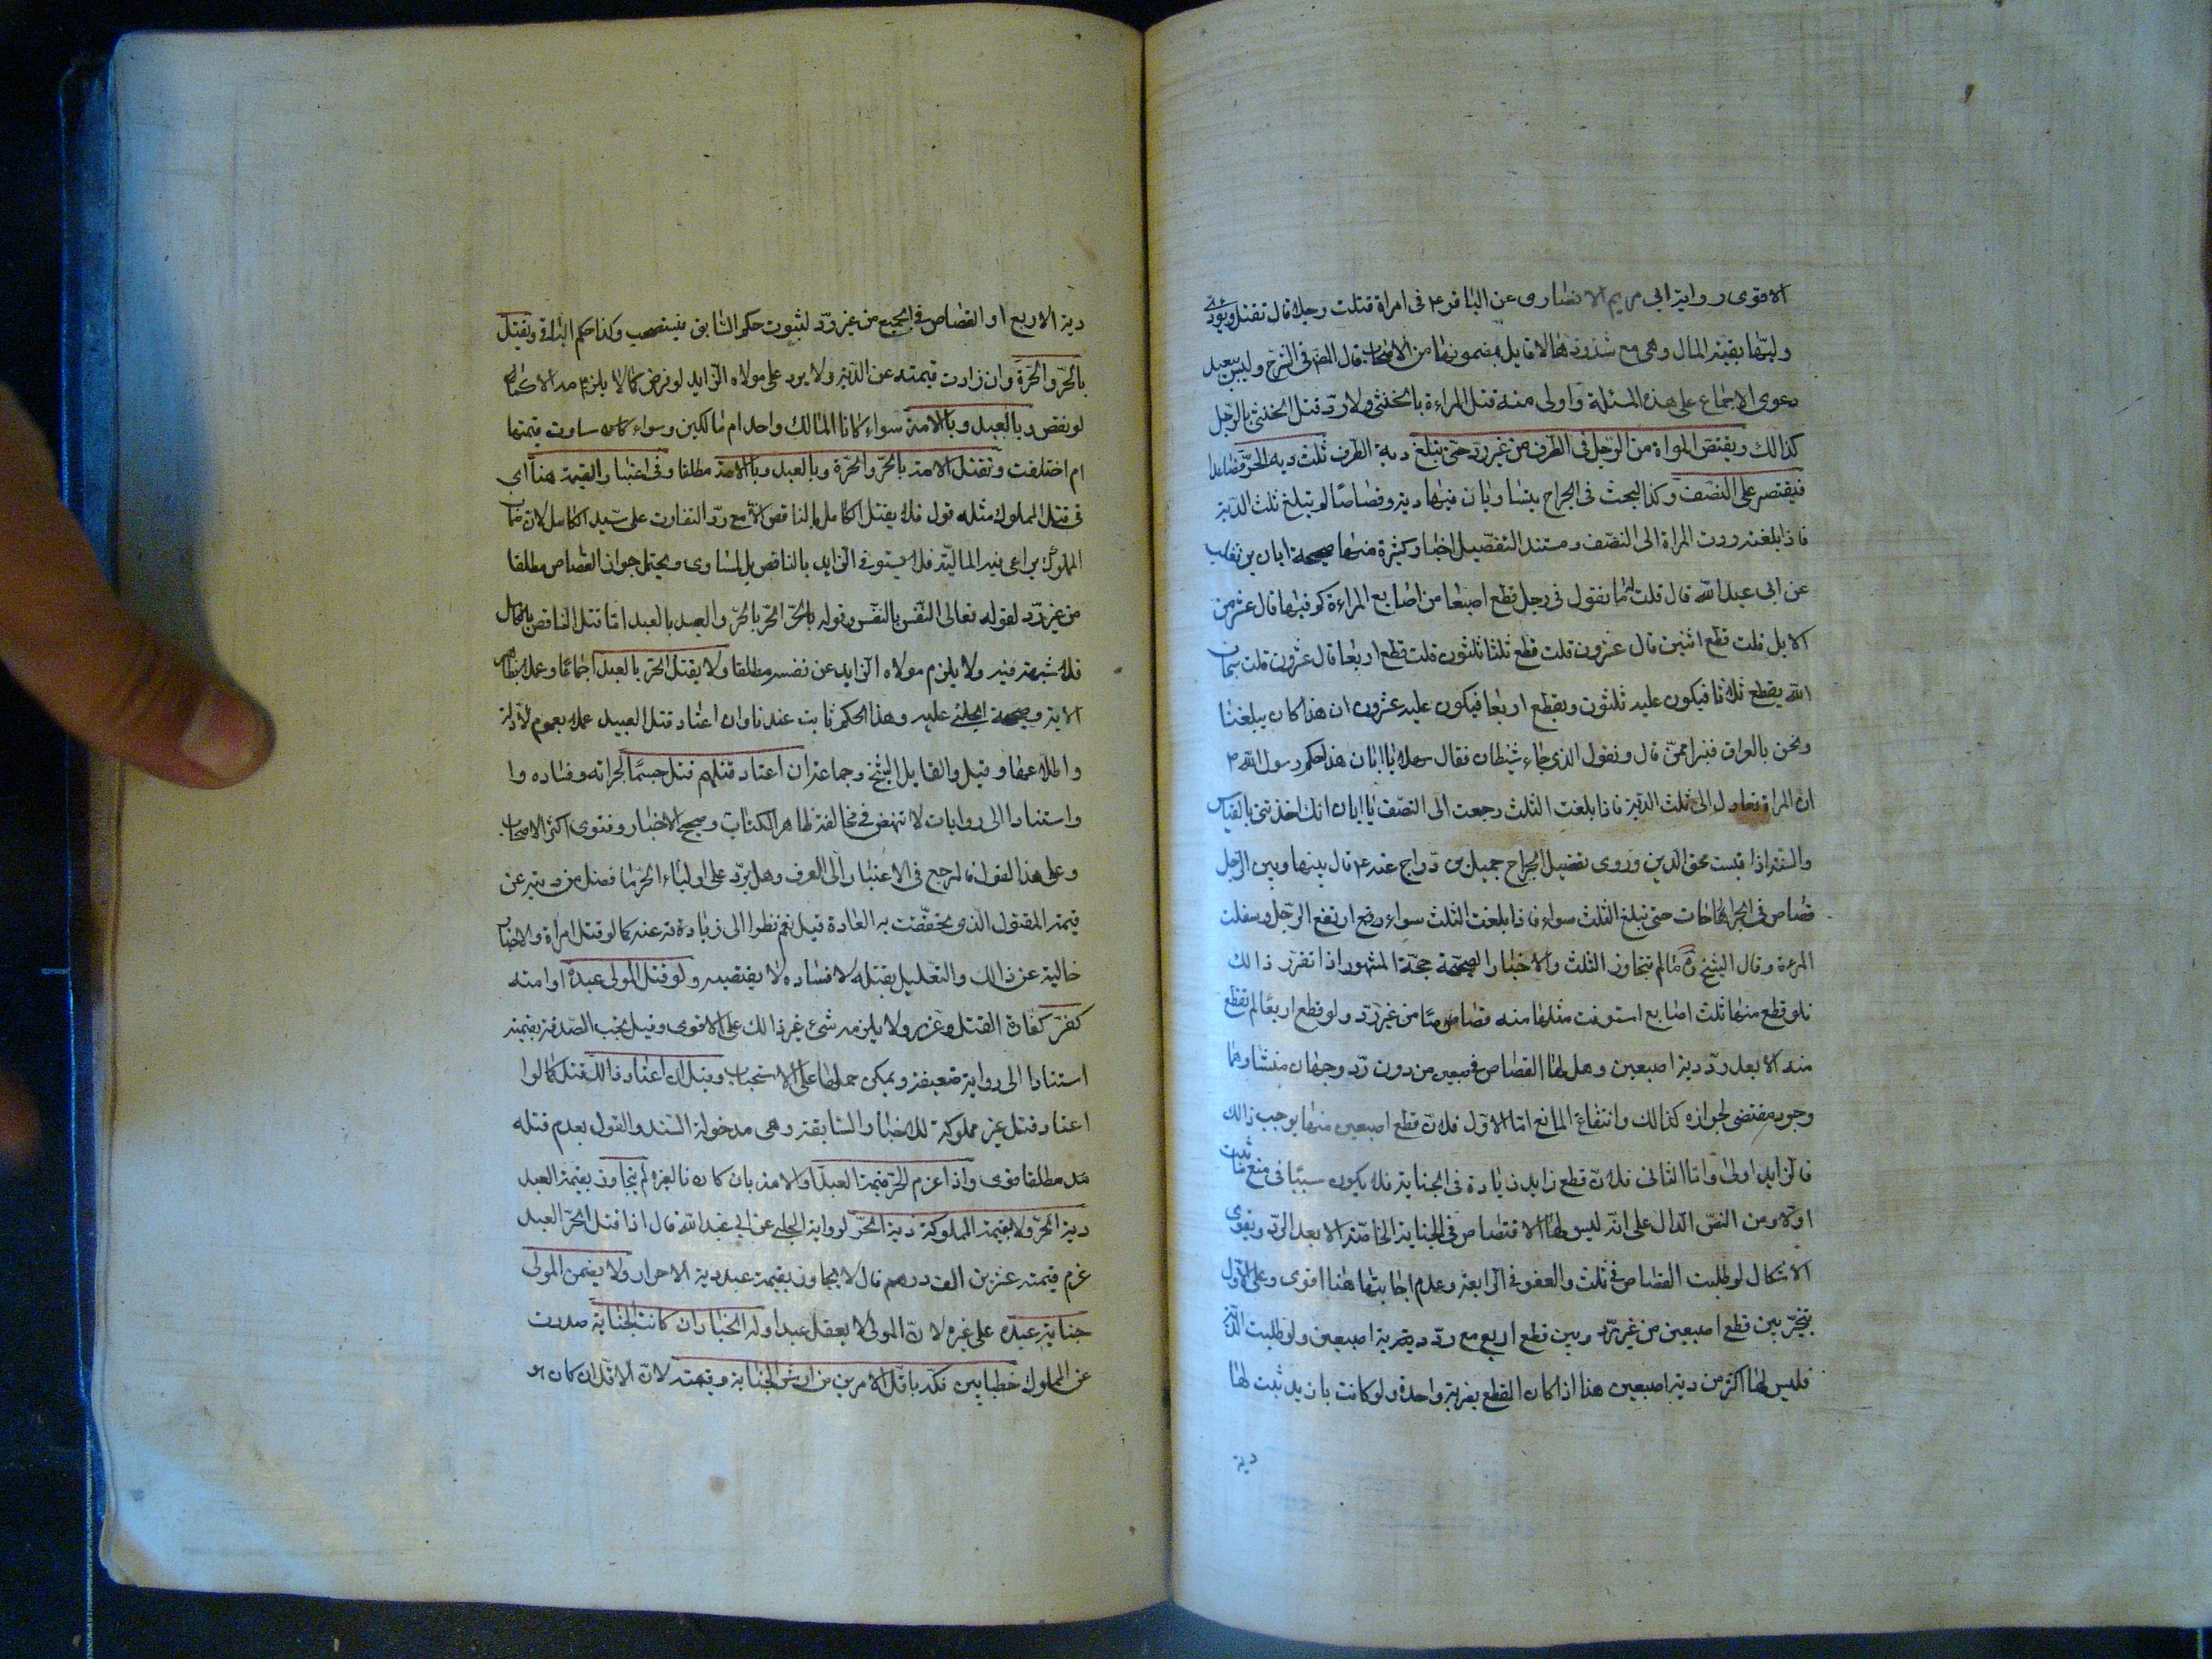 الاقوى رواية ابي مريم الانصارى عن الباقر ع في امراة قتلت رجلا قال تقتل ويؤدى
وليها بقية المال وهى مع شذوذها لا قايل بمضمونها من الاصحاب قال المصـ فى الشرح وليس ببعيد
دعوى الاجماع على هذه المسئلة واولى منه قتل المراءة بالخنثى ولا ردّ وقتل الخنثى بالرّجل
كذالك ويقتص المراة من الرّجل فى الطرف من غير ردّ حتى تبلغ دية الطرف ثلث دية الحرّ فصاعدا
فيقتصر على النصف وكذا البحث فى الجراح يتساويان فيها دية وقصاصًا لم تبلغ ثلث الدّية
فاذا بلغته ردت المراة الى النصف ومستند التفصيل اخبار كثيرة منها صحيحة ابان بن تغلب
عن ابى عبد الله قال قلت له ما تقول فى رجل قطع اصبعا من اصابع المراءة كم فيها قال عشر من
الابل قلت قطع اثنين قال عشرون قلت قطع ثلثا قال ثلثون قلت قطع اربعا قال عشرون قلت سبحان
الله يقطع ثلاثا فيكون عليه ثلثون ويقطع اربعا فيكون عليه عشرون ان هذا كان يبلغنا
ونحن بالعراق فنبرا ممّن قال ونقول الذى جاء شيطان فقال مهلا يا ابان هذا حكم رسول الله ص
ان المراة تعادل الى ثلث الدّية فاذا بلغت الثلث رجعت الى النصف يا ابان انك اخذتنى بالقياس
والسنة اذا قيست محق الدين وروى تفصيل الجراح جميل بن دراج عنه ع قال بينها وبين الرّجل
قصاص فى الجراحات حتى تبلغ الثلث سواء فاذا بلغت الثلث سواء رفع ارتفع الرّجل وسفلت
المرءة وقال الشيخ ره ما لم تتجاوز الثلث والاخبار الصحيحة حجّة المشهور اذا تقرر ذالك
فلو قطع منها ثلث اصابع استوفت مثلها منه قصاصا من غير ردّ ولو قطع اربعًا لم تقطع
منه الا بعد ردّ دية اصبعين وهل لها القصاص فى اصبعين من دون ردّ وجهان منشاوهما
وجود مقتضى لجوازه كذالك وانتفاء المانع امّا الاوّل فلانّ قطع اصبعين منها يوجب ذالك
فالزايد اولى وامّا الثانى فلانّ قطع زايد زيادة فى الجناية فلا يكون سببًا فى منع ما ثبت
اولا ومن النصّ الدّال على انّه ليس لها الاقتصاص فى الجناية الخاصّة الا بعد الرّدّ ويقوى
الاشكال لو طلبت القصاص فى ثلث والعفو فى الرابعة وعدم اجابتها هنا اقوى وعلى الاوّل
يتخيّر بين قطع اصبعين من غير ردّ وبين قطع اربع مع ردّ دية اصبعين ولو طلبت الدّية
فليس لها اكثر من دية اصبعين هذا اذا كان القطع بضربة واحدة ولو كانت بازيد ثبت لها
دية
دية الاربع او القصاص فى الجميع من غير ردّ لثبوت حكم السابق فيستصحب وكذا حكم الباقى ويقتل
بالحرّ والحرّة وان زادت قيمته عن الدّية ولا يرد على مولاه الزايد لو فرض كما لا يلزمه الاكمال
لو نقص وبالعبد وبالامة سواء كانا المالك واحد ام مالكين وسواء كان ساوت قيمتهما
ام اختلفت وتقتل الامة بالحرّ والحرّة وبالعبد وبالامة مطلقا وفى اعتبار القيمة هنا اى
فى قتل المملوك مثله قول فلا يقتل الكامل بالناقص الّا مع ردّ التفاوت على سيد الكامل لان ضمان
المملوك يراعى فيه المالية فلا يستوفى الزايد بالناقص بل المساوى ويحتمل جواز القصاص مطلقا
من غير ردّ لقوله تعالى النفس بالنفس وقوله الحرّ بالحرّ والعبد بالعبد امّا قتل الناقص بالكامل
فلا شبهة فيه ولا يلزم مولاه الزايد عن نفسه مطلقا ولا يقتل الحرّ بالعبد اجماعًا وعملا بظاهر
الاية وصحيحة الحلبى عليه وهذا الحكم ثابت عندنا وان اعتاد قتل العبيد عملا بعموم الادلة
واطلاقها وقيل والقايل الشيخ وجماعة ان اعتاد قتلهم قتل حسمًا لجراته وفساده وا
واستنادا الى روايات لا تنهض فى مخالفة ظاهر الكتاب وصحيح الاخبار وفتوى اكثر الاصحاب
وعلى هذا القول فالمرجع فى الاعتياد الى العرف وهل يردّ على اولياء الحرّ ما فضل من ديته عن
قيمة المقتول الذى تحققت به العادة قيل نعم نظرا الى زيادته عنه كما لو قتل امراة والاخبار
خالية عن ذالك والتعليل بقتله لافساده لا يقتضيه ولو قتل المولى عبده او امته
كفّر كفارة القتل وعزّر ولا يلزمه شىء غير ذالك على الاقوى وقيل يجب الصدقة بقيمته
استنادا الى رواية ضعيفة ويمكن حملها على الاستحباب وقيل ان اعتاد ذالك قتل كما لو ا
اعتاد قتل غير مملوكه للاخبار السابقة وهى مدخولة السند والقول بعدم قتله
به مطلقا قوى واذا غرم الحرّ قيمة العبد او الامة بان كانا لغيره لم يتجاوز بقيمة العبد
دية الحرّ ولا بقيمة المملوكة دية الحرّ لرواية الحلبى عن ابى عبد الله قال اذا قتل الحرّ العبد
غرم قيمته عشرين الف درهم قال لا يجاوز بقيمة عبد دية الاحرار ولا يضمن المولى
جناية عبده على غيره لانّ المولى لا يعقل عبدا وله الخيار ان كانت الجناية صدرت
عن المملوك خطا بين فكّه باقلّ الامرين من ارش الجناية وقيمته لانّ الاقلّ ان كان هو